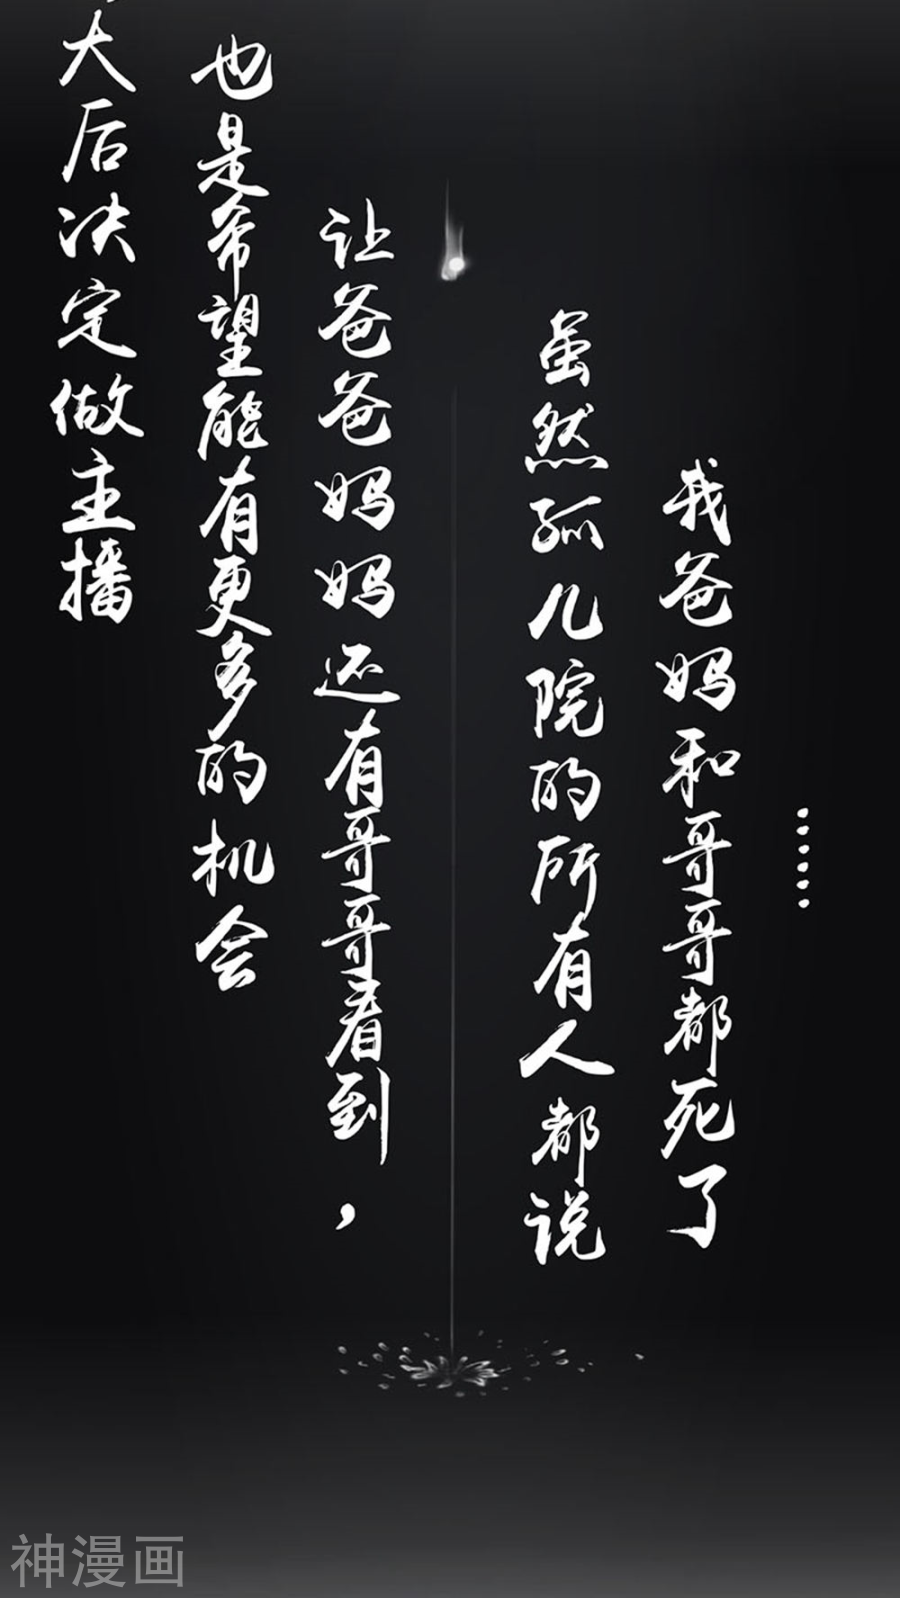 大后决定做主播
也是希望能有更多的机会
让爸爸妈妈还有哥哥看到，
虽然孤儿院的所有人都说
我爸妈和哥哥都死了
……
神漫画